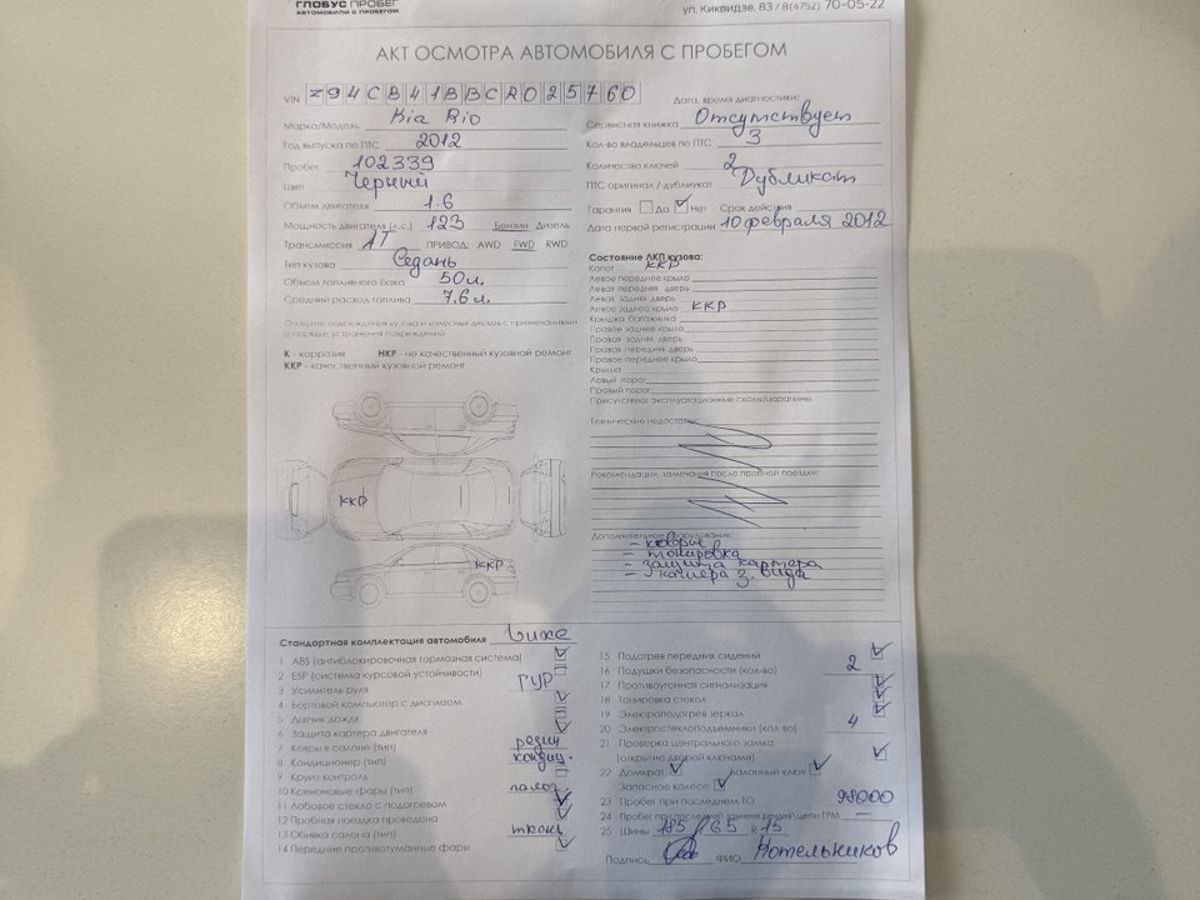 ГЛОБУС ПРОБЕГ
АВТОМОБИЛИ С ПРОБЕГОМ
ул. Киквидзе, 83 / 8(4752) 70-05-22
АКТ ОСМОТРА АВТОМОБИЛЯ С ПРОБЕГОМ
VIN Z94CB41BBCR025760
Марка/Модель Kia Rio
Год выпуска по ПТС 2012
Пробег 102339
Цвет Черный
Объем двигателя 1.6
Мощность двигателя (л.с.) 123 Бензин Дизель
Трансмиссия АТ ПРИВОД: AWD FWD RWD
Тип кузова Седань
Объем топливного бака 50л.
Средний расход топлива 7.6 л.
Опишите повреждения кузова и колесных дисков с примечаниями
о порядке устранения повреждений
К - коррозия НКР - не качественный кузовной ремонт
ККР - качественный кузовной ремонт
ККР
ККР
Дата, время диагностики:
Сервисная книжка Отсутствует
Кол-во владельцев по ПТС 3
Количество ключей 2
ПТС оригинал / дубликат Дубликат
Гарантия Да Нет Срок действия
Дата первой регистрации 10 февраля 2012
Состояние ЛКП кузова:
Капот ККР
Левое переднее крыло
Левая передняя дверь
Левая задняя дверь
Левое заднее крыло ККР
Крышка багажника
Правое заднее крыло
Правая задняя дверь
Правая передняя дверь
Правое переднее крыло
Крыша
Левый порог
Правый порог
Присутствуют эксплуатационные сколы/царапины
Технические недостатки:
Рекомендации, замечания после пробной поездки:
Дополнительное оборудование:
- коврые
- тонировка
- защита картера
- камера з. вида
Стандартная комплектация автомобиля Luxe
1 ABS (антиблокировочная тормозная система)
2 ESP (система курсовой устойчивости)
3 Усилитель руля ГУР
4 Бортовой компьютер с дисплеем
5 Датчик дождя
6 Защита картера двигателя
7 Ковры в салоне (тип) резин
8 Кондиционер (тип) кондиц.
9 Круиз контроль
10 Ксеноновые фары (тип) галог.
11 Лобовое стекло с подогревом
12 Пробная поездка проведена
13 Обивка салона (тип) ткань
14 Передние противотуманные фары
15 Подогрев передних сидений
16 Подушки безопасности (кол-во) 2
17 Противоугонная сигнализация
18 Тонировка стекол
19 Электроподогрев зеркал
20 Электростеклоподъемники (кол-во) 4
21 Проверка центрального замка
(открытие дверей ключами)
22 Домкрат Балонный ключ
Запасное колесо
23 Пробег при последнем ТО 98000
24 Пробег при последней замене ремня/цепи ГРМ —
25 Шины 185 / 65 R 15
Подпись ФИО Котельников